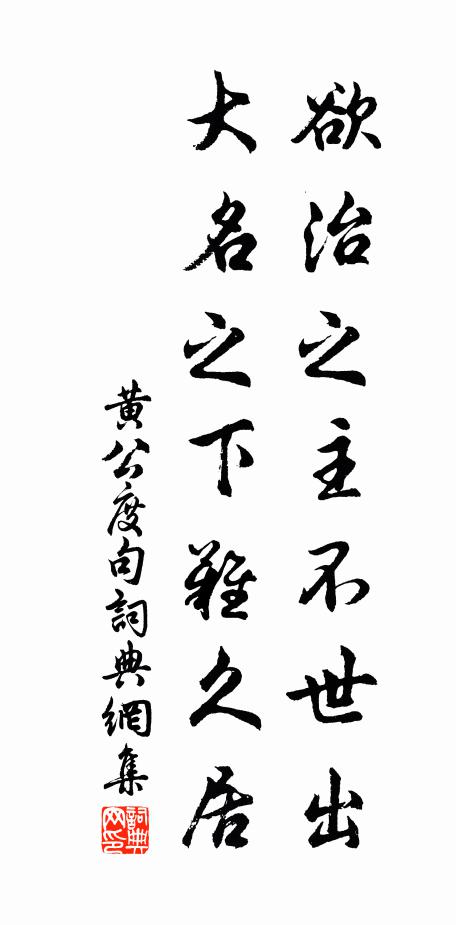 欲治之主不世出
大名之下難久居
黄公度句詞典網集
詞典网印